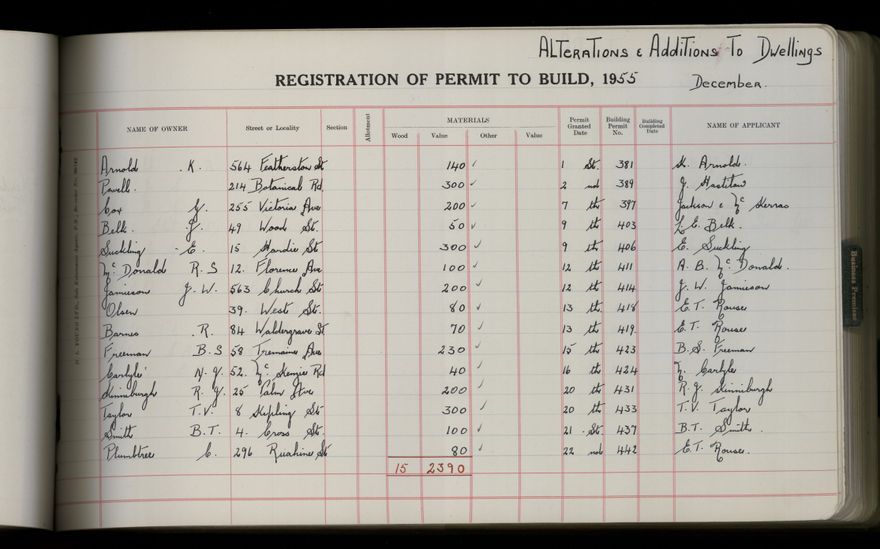 Alterations & Additions To Dwellings
REGISTRATION OF PERMIT TO BUILD, 1955 December.
NAME OF OWNER Street or Locality Section Allotment MATERIALS Wood Value Other Value Permit Granted Date Building Permit No. Building Completed Date NAME OF APPLICANT
Arnold K. 564 Featherston St 140 ✓ 1 st. 381 K. Arnold.
Powell. 214 Botanical Rd. 300 ✓ 2 nd 389 J.
Cox 255 Victoria Ave 200 ✓ 7 th 397 Jackson & Mc
Belk. 49 Wood St. 50 ✓ 9 th 403 L. E. Belk.
Suckling E. 15 Hardie St 300 ✓ 9 th 406 E. Suckling
Mc Donald R. S 12. Florence Ave 100 ✓ 12 th 411 A. B. Mc Donald.
Jamieson J. W. 563 Church St 200 ✓ 12 th 414 J. W. Jamieson
Olsen 39. West St. 80 ✓ 13 th. 418 E. T. Rouse
Barnes R. 84 Waldergrave St 70 ✓ 13 th 419. E. T. Rouse
Freeman B. S 58 Tremaine Ave 230 ✓ 15 th 423 B. S. Freeman
Carlyle 52. Mc Kenzie Rd 40 ✓ 16 th 424 Carlyle
Kinniburgh R. J. 25 Palm Ave 200 ✓ 20 th 431 R. J. Kinniburgh
Taylor T. V. 8 Kipling St 300 ✓ 20 th 433 T. V. Taylor
Smith B. T. 4. Cross St. 100 ✓ 21 st. 437 B. T. Smith.
Plumbtree C. 296 Ruahine St 80 ✓ 22 nd 442 E. T. Rouse.
15 2390
Business Premises